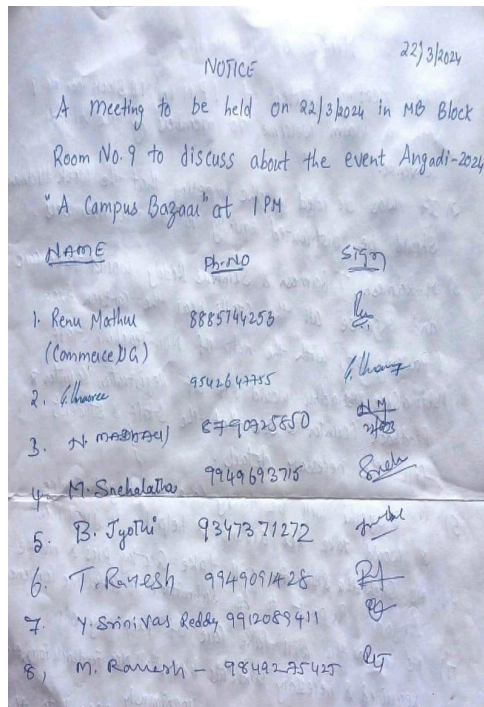 22/3/2024
NOTICE
A meeting to be held on 22/3/2024 in MB Block
Room No. 9 to discuss about the event Angadi-2024
"A Campus Bazaar" at 1 PM
NAME Ph.NO Sign
1. Renu Mathur 8885744253
(Commerce DG)
2. 9542647755
3. N. MADHAVI 8790725850 NM
4. M. Snehalatha 9949693715 Sneh
5. B. Jyothi 9347371272
6. T. Ramesh 9949091428
7. Y. Srinivas Reddy 9912089411
8, M. Ramesh - 9849275425